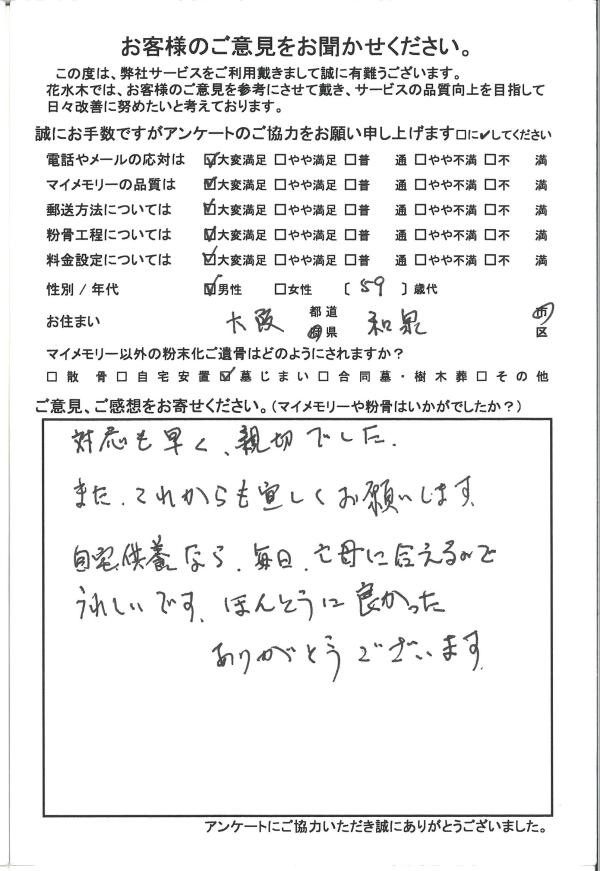 お客様のご意見をお聞かせください。
この度は、弊社サービスをご利用戴きまして誠に有難うございます。
花水木では、お客様のご意見を参考にさせて戴き、サービスの品質向上を目指して
日々改善に努めたいと考えております。
誠にお手数ですがアンケートのご協力をお願い申し上げます□に✔してください
電話やメールの応対は ☑大変満足 □やや満足 □普 通 □やや不満 □不 満
マイメモリーの品質は ☑大変満足 □やや満足 □普 通 □やや不満 □不 満
郵送方法については ☑大変満足 □やや満足 □普 通 □やや不満 □不 満
粉骨工程については ☑大変満足 □やや満足 □普 通 □やや不満 □不 満
料金設定については ☑大変満足 □やや満足 □普 通 □やや不満 □不 満
性別 / 年代 ☑男性 □女性 〔 59 〕歳代
お住まい 大阪 都道府県 和泉 市区
マイメモリー以外の粉末化ご遺骨はどのようにされますか？
□散 骨 □自宅安置 ☑墓じまい □合同墓・樹木葬 □その他
ご意見、ご感想をお寄せください。(マイメモリーや粉骨はいかがでしたか？)
対応も早く、親切でした.
また、これからも宜しくお願いします.
自宅供養なら、毎日、亡母に会えるので
うれしいです、ほんとうに良かった
ありがとうございます.
アンケートにご協力いただき誠にありがとうございました。